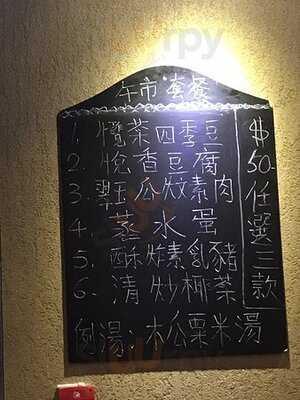 午市套餐
1. 欖菜四季豆
2. 燴香豆腐
3. 翠玉瓜炆素肉
4. 蒸水蛋
5. 酥炸素乳豬
6. 清炒椰菜
例湯:木瓜粟米湯
$50-任選三款